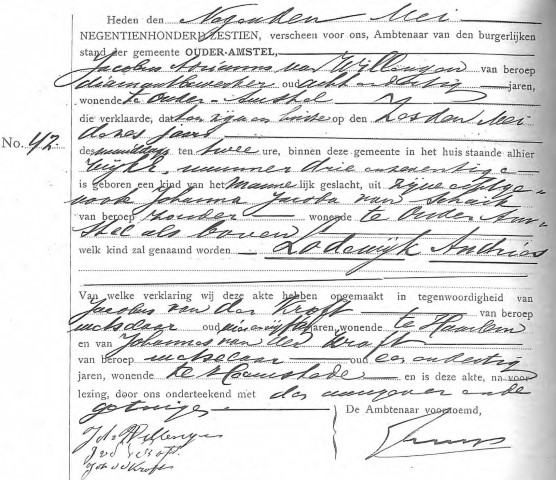 Heden den Negenden Mei
NEGENTIENHONDERD ZESTIEN, verscheen voor ons, Ambtenaar van den burgerlijken
stand der gemeente OUDER-AMSTEL,
Jacobus Adrianus van Willengen van beroep
diamantbewerker oud acht en dertig jaren,
wonende te Ouder-Amstel
die verklaarde, dat ten zijnen huize op den Zesden Mei
dezes jaars
des namiddags ten twee ure, binnen deze gemeente in het huis staande alhier
Wijk nummer drie en zeventig
is geboren een kind van het mannelijk geslacht, uit zijne echtge-
noote Johanna Jacoba van Schaik
van beroep zonder wonende te Ouder Am-
stel als boven
welk kind zal genaamd worden Lodewijk Andries
No. 42.
Van welke verklaring wij deze akte hebben opgemaakt in tegenwoordigheid van
Jacobus van der Kroft van beroep
metselaar oud jaren, wonende te Haarlem
en van Johannes van der Kroft
van beroep metselaar oud een en dertig
jaren, wonende te Heemstede en is deze akte, na voor
lezing, door ons onderteekend met den aangever en de
getuigen
De Ambtenaar voornoemd,
J. A. v Willengen
J v d Kroft
Joh v d Kroft